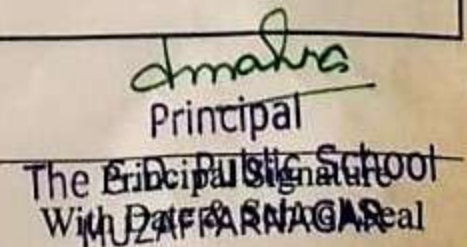 Principal
The S.D. Public School
MUZAFFARNAGAR
Principal Signature
With Date & School Seal